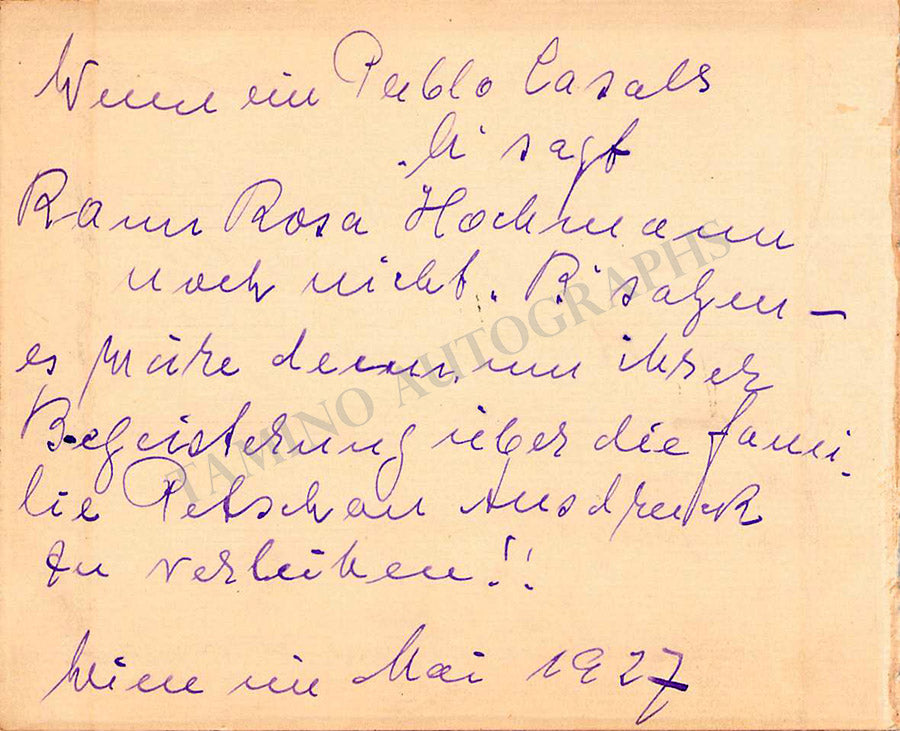 Wenn ein Pablo Casals
„A“ sagt
Kann Rosa Hochmann
noch nicht „B“ sagen —
es wäre denn, um ihrer
Begeisterung über die Fami-
lie Petschau Ausdruck
zu verleihen!!
Wien im Mai 1927
TAMINO AUTOGRAPHS